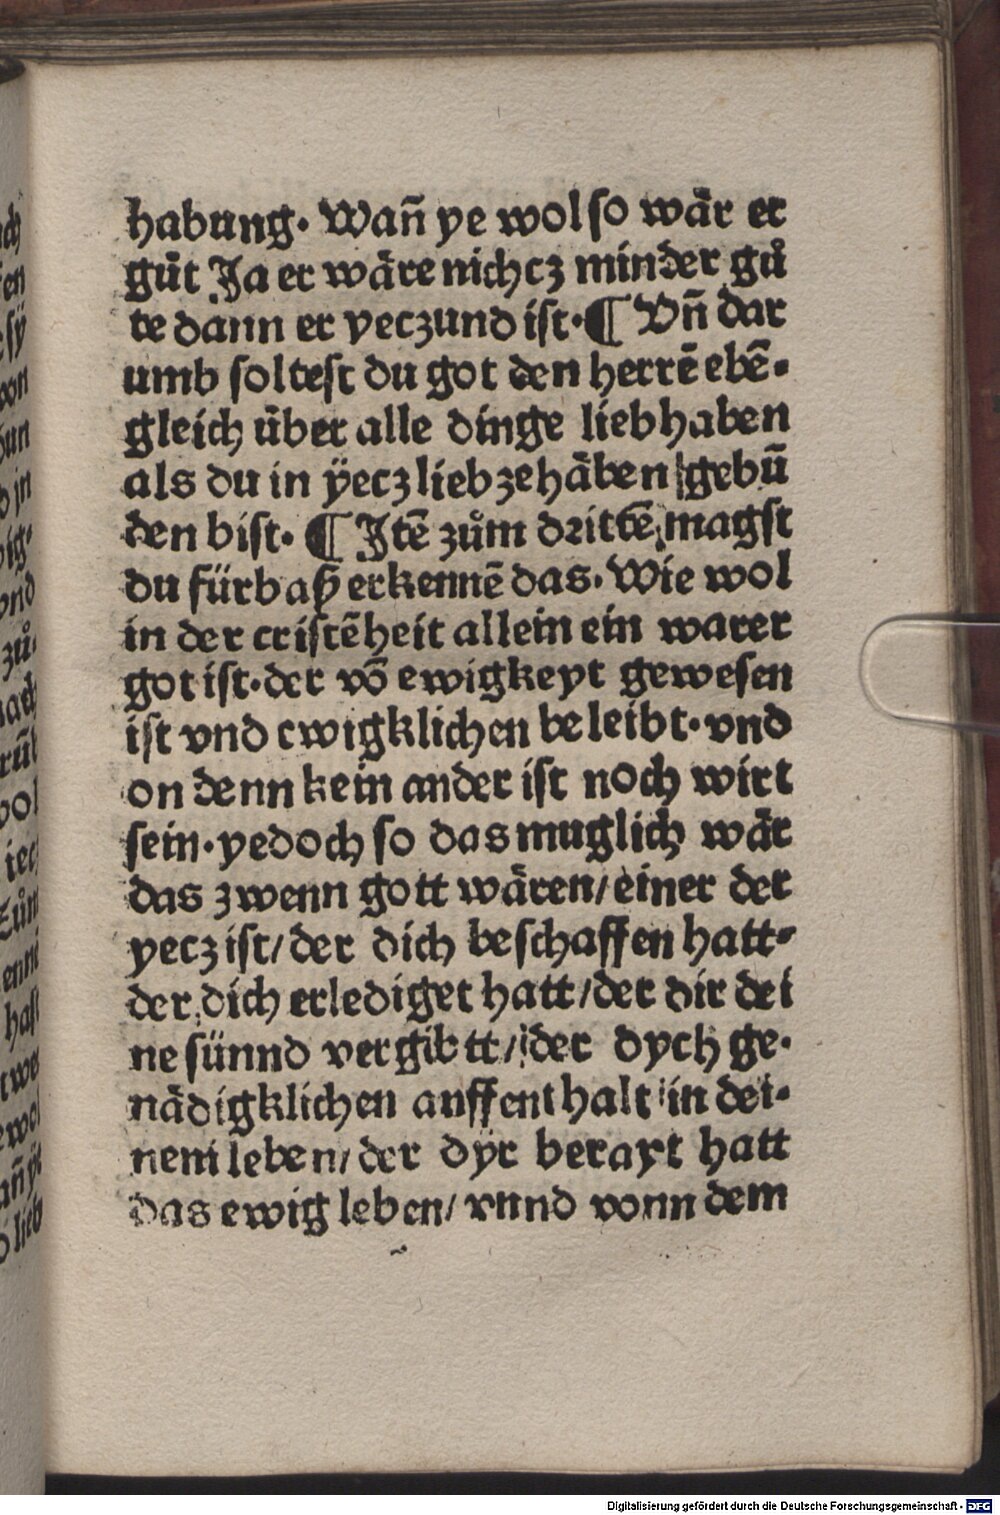 habung. Wañ ye wol so wår er
gůt Ja er wåre nichcz minder gů
te dann er yeczund ist. ¶ Vñ dar
umb soltest du got den herrē ebē-
gleich über alle dinge liebhaben
als du in ÿecz lieb zehåben gebū
den bist. ¶ Itē zům drittē magst
du fürbaß erkennē das. Wie wol
in der cristēheit allein ein warer
got ist. der võ ewigkeyt gewesen
ist vnd ewigklichen beleibt. vnd
on denn kein ander ist noch wirt
sein. yedoch so das muglich wår
das zwenn gott wåren/ einer der
yecz ist/ der dich beschaffen hatt-
der dich erlediget hatt/ der dir dei
ne sünnd vergibtt/ der dych ge-
nådigklichen auffenthalt in dei-
nem leben/ der dyr berayt hatt
das ewig leben/ vnnd vonn dem
Digitalisierung gefördert durch die Deutsche Forschungsgemeinschaft - DFG